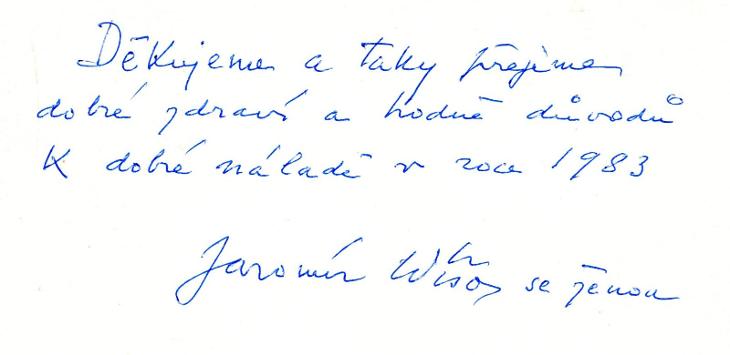 Děkujeme a taky přejeme
dobré zdraví a hodně důvodů
K dobré náladě v roce 1983
Jaromír se ženou